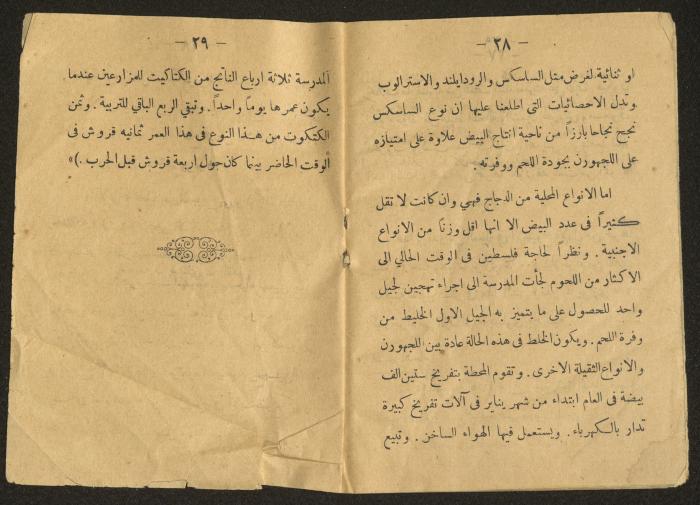 — ٢٨ —
او ثنائية لغرض مثل الساسكس والرودايلند والاسترالوب
وتدل الاحصائيات التى اطلعنا عليها ان نوع الساسكس
نجح نجاحا بارزاً من ناحية انتاج البيض علاوة على امتيازه
على اللجهورن بجودة اللحم ووفرته .
اما الانواع المحلية من الدجاج فهي وان كانت لا تقل
كثيراً فى عدد البيض الا انها اقل وزناً من الانواع
الاجنبية . ونظراً لحاجة فلسطين فى الوقت الحالي الى
الاكثار من اللحوم لجأت المدرسة الى اجراء تهجين لجيل
واحد للحصول على ما يتميز به الجيل الاول الخليط من
وفرة اللحم . ويكون الخلط فى هذه الحالة عادة بين اللجهورن
والانواع الثقيلة الاخرى . وتقوم المحطة بتفريخ ستين الف
بيضة فى العام ابتداء من شهر يناير فى آلات تفريخ كبيرة
تدار بالكهرباء . ويستعمل فيها الهواء الساخن . وتبيع
— ٢٩ —
المدرسة ثلاثة ارباع الناتج من الكتاكيت للمزارعين عندما
يكون عمرها يوماً واحداً . وتبقي الربع الباقي للتربية . وثمن
الكتكوت من هذا النوع فى هذا العمر ثمانيه قروش فى
ألوقت الحاضر بينما كان حول اربعة قروش قبل الحرب .)»